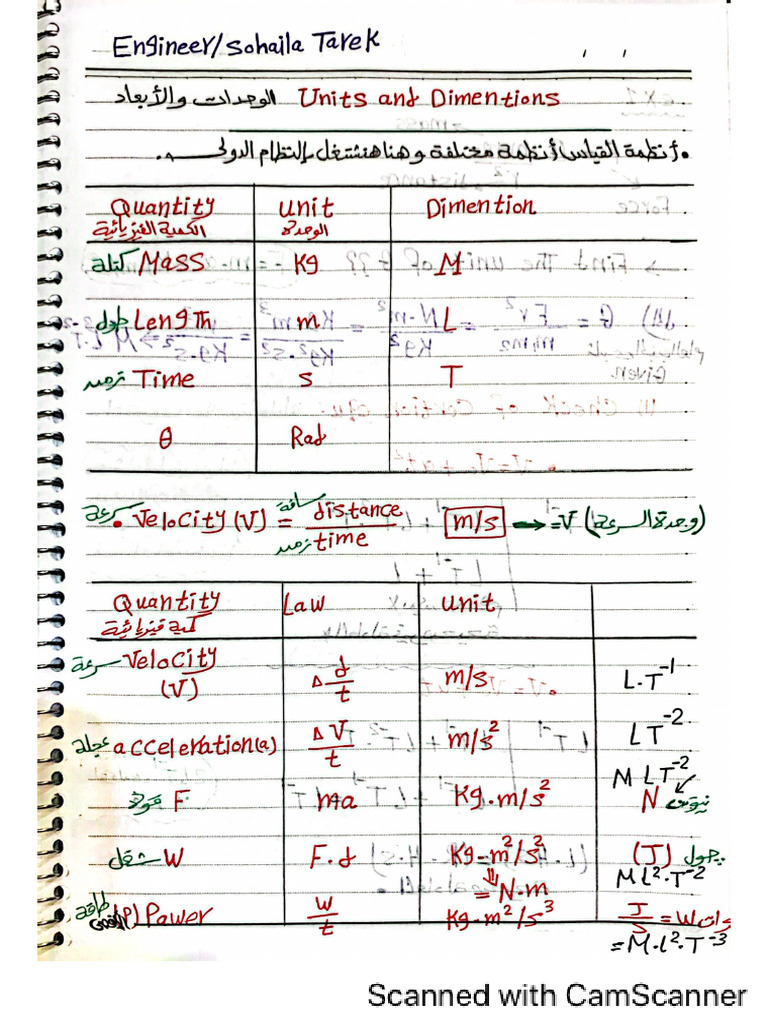 Engineer/Sohaila Tarek / /
الوحدات والأبعاد Units and Dimentions
. أنظمة القياس أنظمة مختلفة وهنا هنشتغل بالنظام الدولى .
Quantity الكمية الفيزيائية Unit الوحدة Dimention
كتلة Mass Kg M
طول Length m L
زمن Time s T
θ Rad
سرعة . Velocity (V) = مسافة distance / زمن time m/s → =V (وحدة السرعة)
Quantity كمية فيزيائية Law Unit
سرعة Velocity (V) Δ d/t m/s L.T⁻¹
عجلة acceleration(a) ΔV/t m/s² LT⁻²
MLT⁻²
قوة F ma Kg.m/s² N نيوتن
شغل W F.d Kg.m²/s² جول (J)
= N.m ML².T⁻²
طاقة (P) Pawer W/t Kg.m²/s³ J/s = W وات
= M.L².T⁻³
Scanned with CamScanner